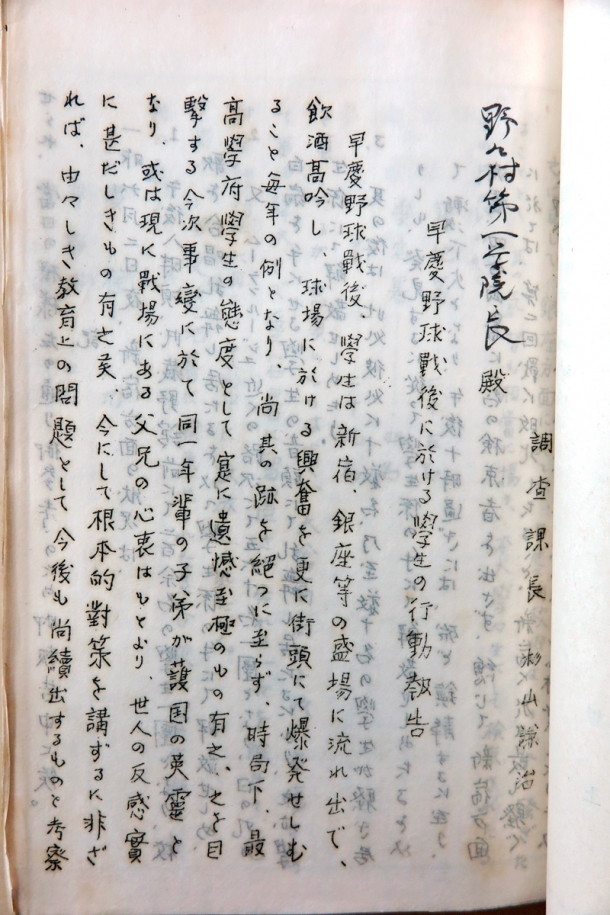 調査課長 杉山謙治
野々村第一学院長 殿
早慶野球戰後に於ける學生の行動報告
早慶野球戰後、學生は新宿、銀座等の盛場に流れ出で、
飲酒高吟し、球場に於ける興奮を更に街頭にて爆発せしむ
ること毎年の例となり、尚其の跡を絶つに至らず、時局下、最
高學府學生の態度として寔に遺憾至極のもの有之、之を目
擊する今次事變に於て同一年輩の子弟が護国の英靈と
なり、或は現に戰場にある父兄の心衷はもとより、世人の反感實
に甚だしきもの有之矣、今にして根本的對策を講ずるに非ざ
れば、由々しき教育上の問題として今後も尚續出するものと考察